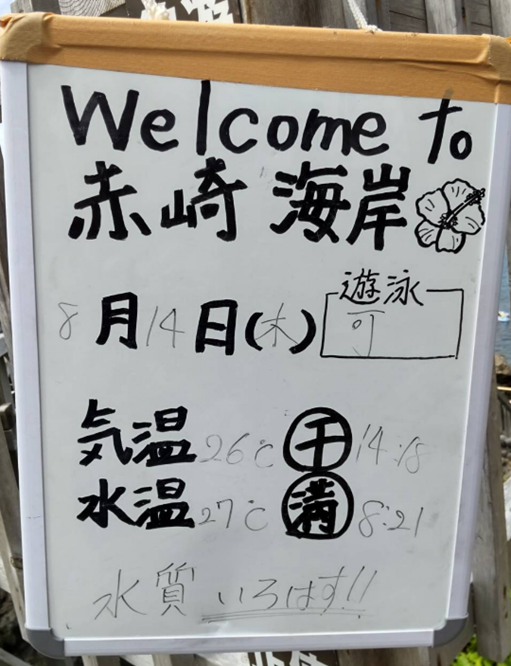 Welcome to
赤崎 海岸
8月14日(木)
遊泳
可
気温 26℃ 干 14:18
水温 27℃ 満 8:21
水質 いろはす!!